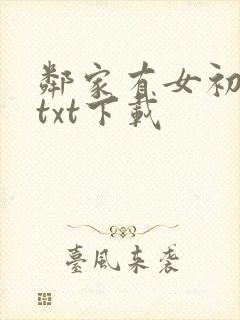 鄰家有女初
txt下載
臺風來袭